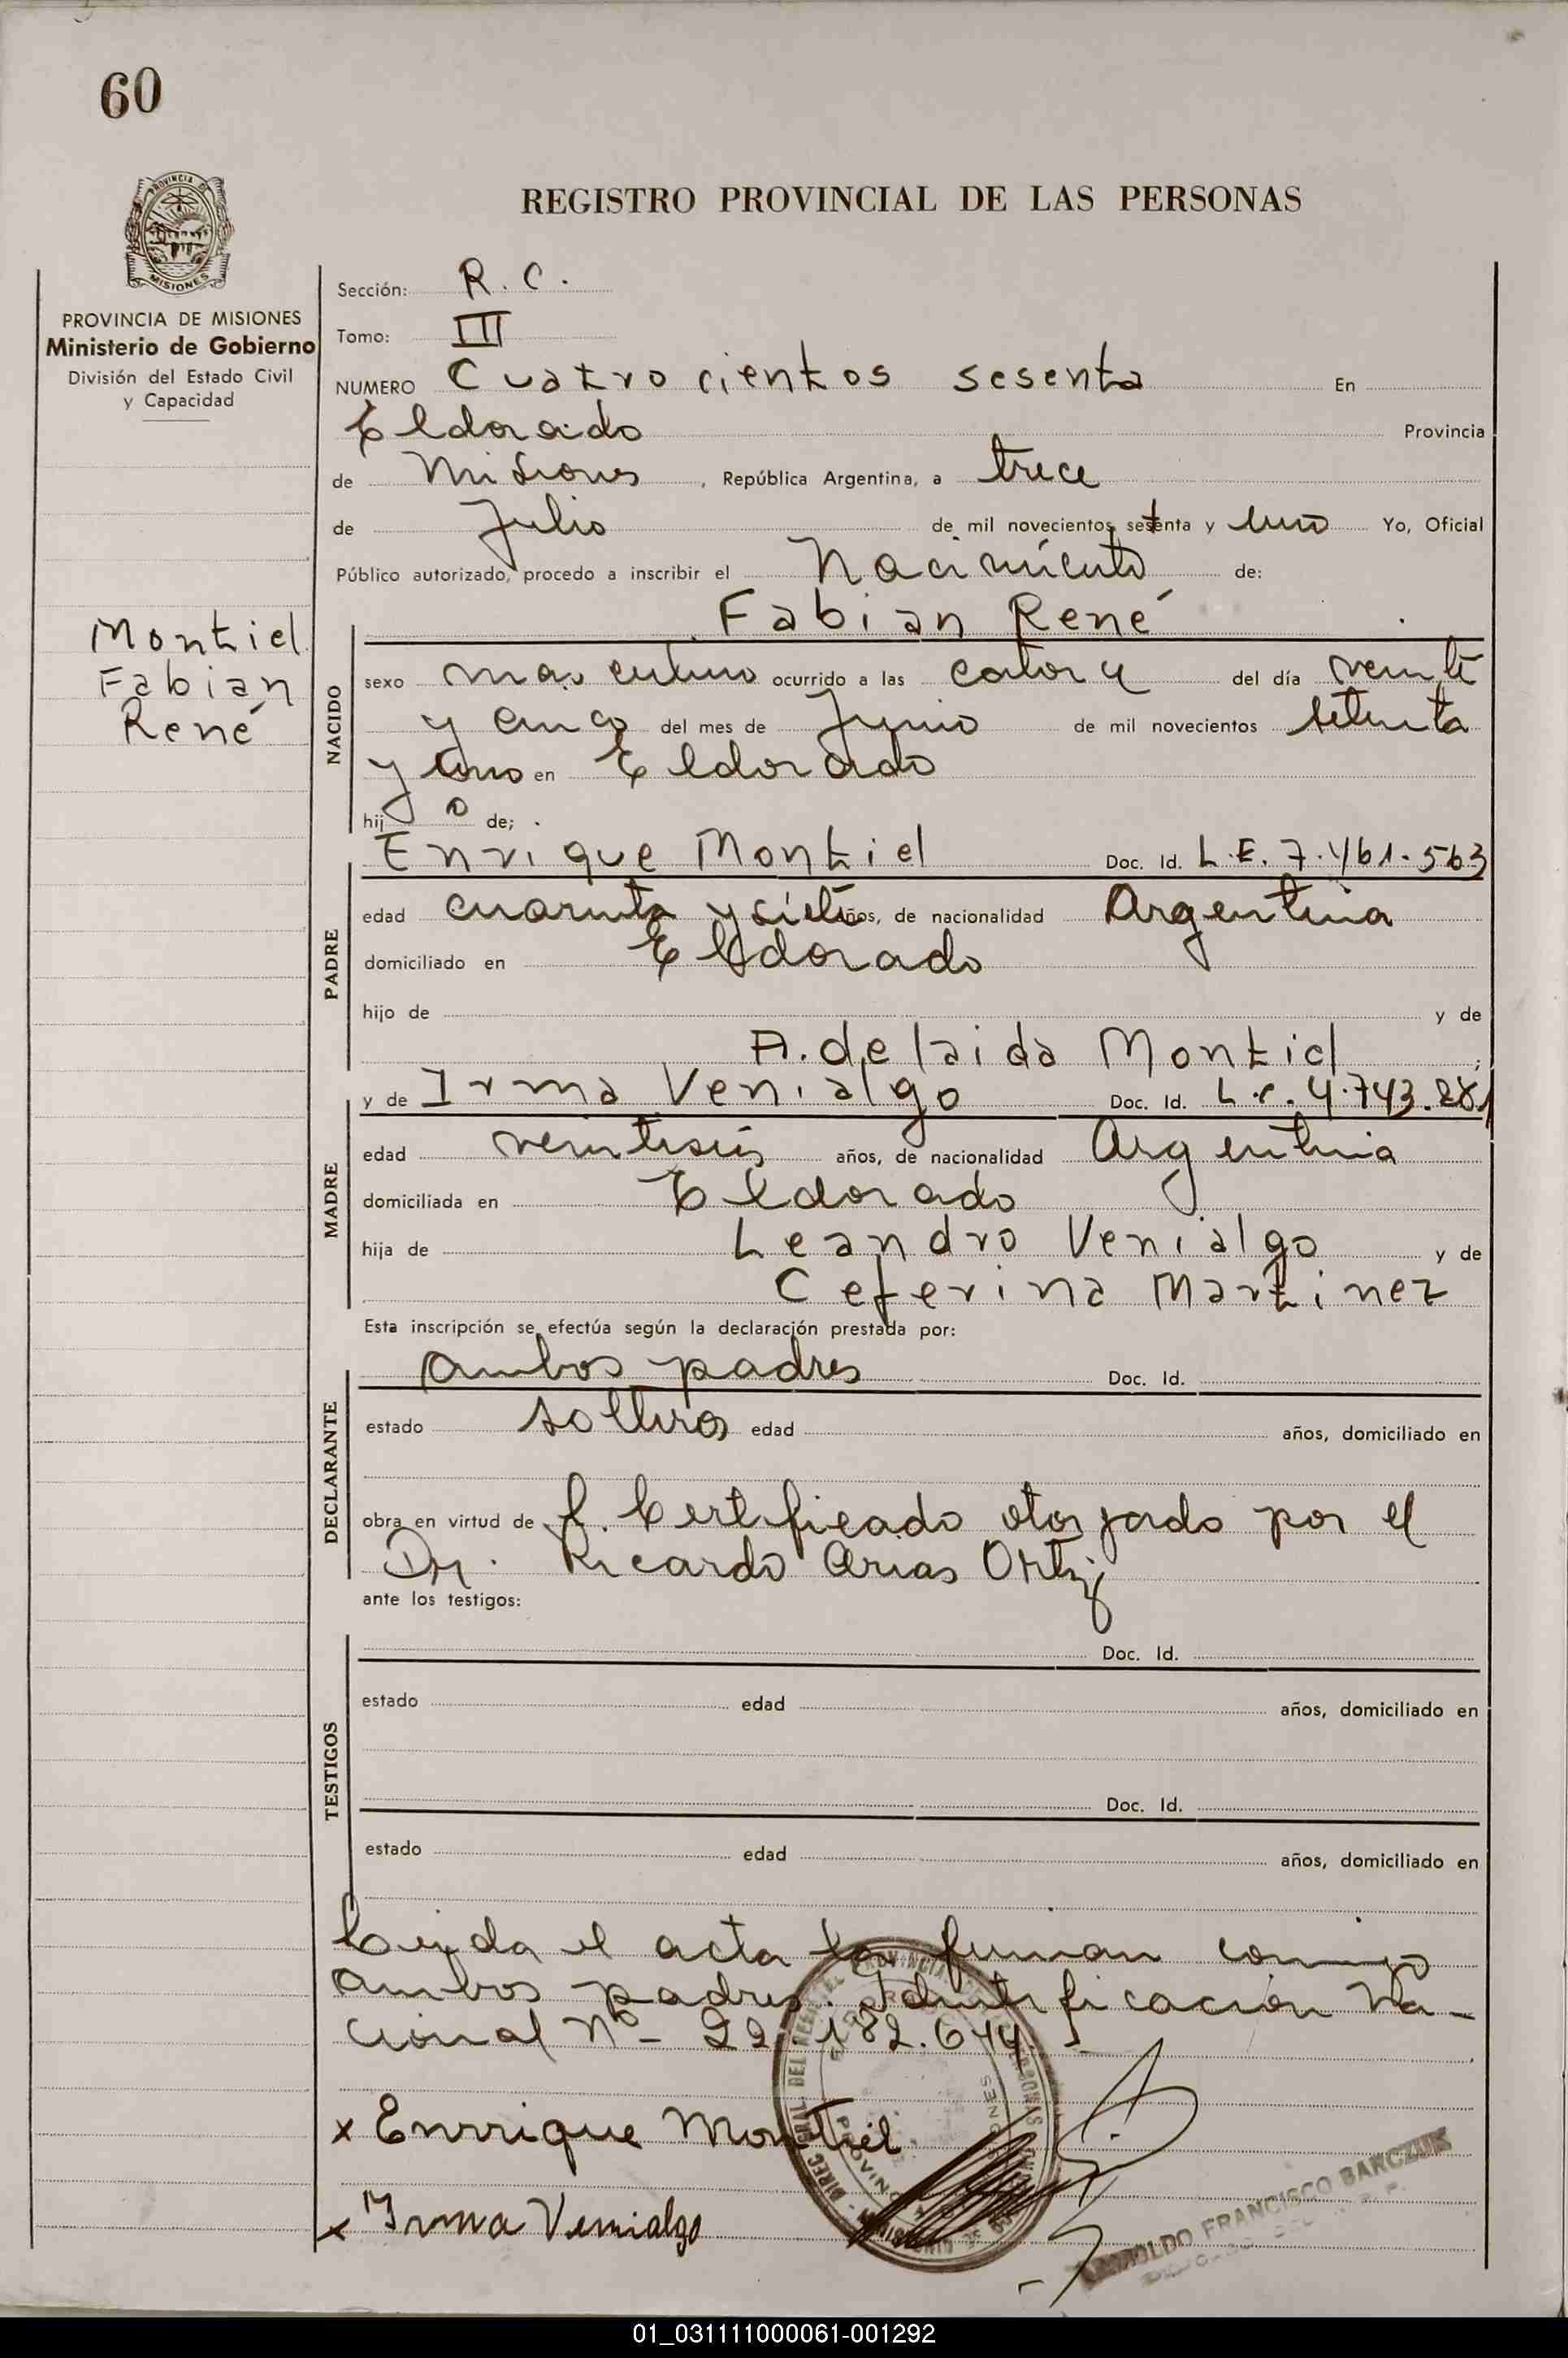 60
PROVINCIA DE
MISIONES
PROVINCIA DE MISIONES
Ministerio de Gobierno
División del Estado Civil
y Capacidad
Montiel
Fabian
René
REGISTRO PROVINCIAL DE LAS PERSONAS
Sección: R. C.
Tomo: III
NUMERO Cuatrocientos sesenta En
Eldorado Provincia
de Misiones, República Argentina, a trece
de Julio de mil novecientos setenta y uno Yo, Oficial
Público autorizado, procedo a inscribir el Nacimiento de:
Fabian René
NACIDO
sexo masculino ocurrido a las catorce del día veinti
y cinco del mes de Junio de mil novecientos setenta
y uno en Eldorado
hijo de;
PADRE
Enrique Montiel Doc. Id. L.E. 7.461.563
edad cuarenta y siete años, de nacionalidad Argentina
domiciliado en Eldorado
hijo de y de
Adelaida Montiel ;
MADRE
y de Irma Venialgo Doc. Id. L.C. 4.743.281
edad veintiseis años, de nacionalidad Argentina
domiciliada en Eldorado
hija de Leandro Venialgo y de
Ceferina Martinez
Esta inscripción se efectúa según la declaración prestada por:
DECLARANTE
ambos padres Doc. Id.
estado solteros edad años, domiciliado en
obra en virtud de Certificado otorgado por el
Dr. Ricardo Arias Ortiz
ante los testigos:
TESTIGOS
Doc. Id.
estado edad años, domiciliado en
Doc. Id.
estado edad años, domiciliado en
Leida el acta la firman conmigo
ambos padres. Identificación Na-
cional Nº- 22.182.644.
x Enrrique Montiel
x Irma Venialgo
FRANCISCO BARCZUK
01_031111000061-001292